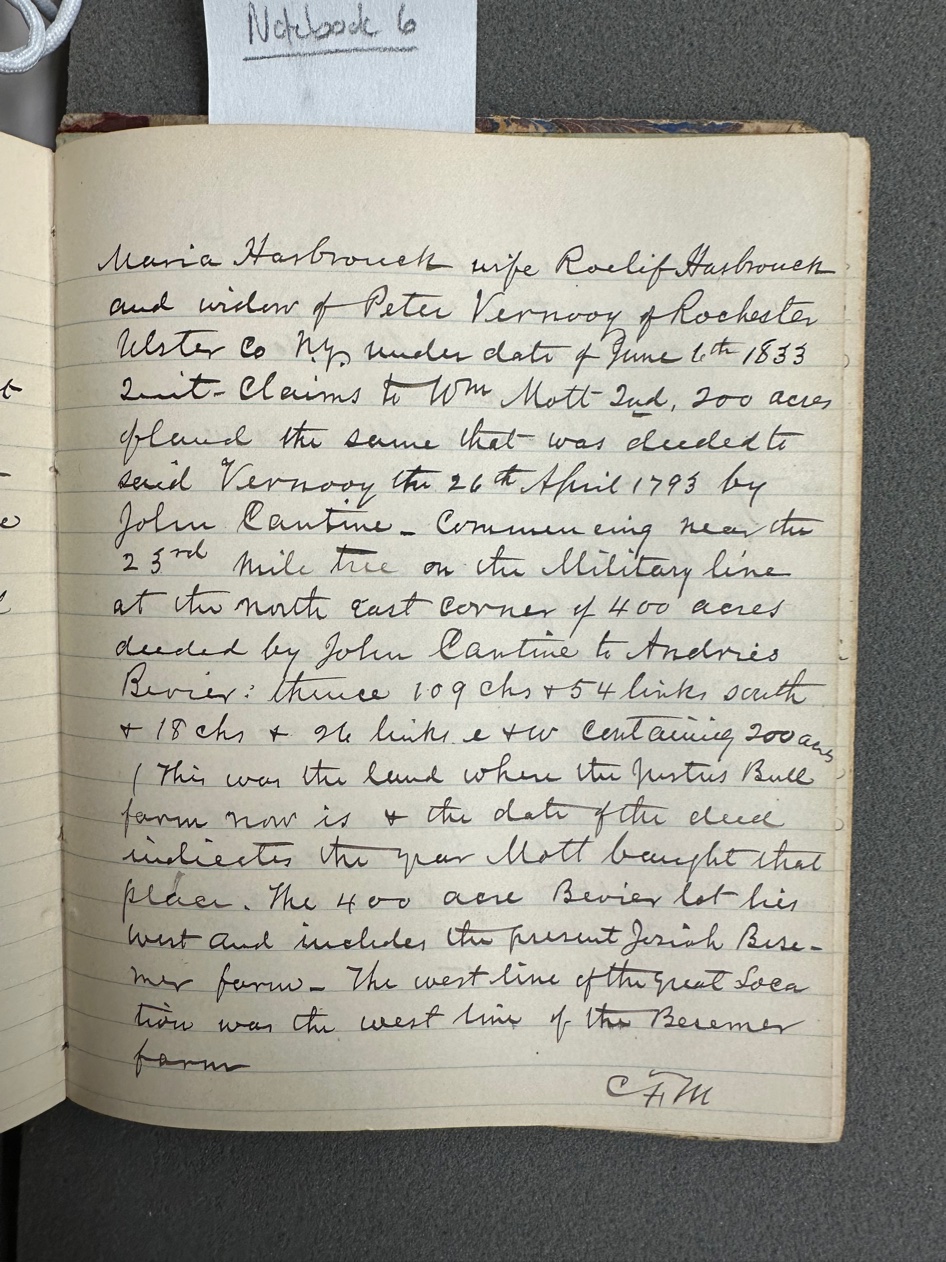 Notebook 6
Maria Hasbrouck wife Roelif Hasbrouck
and widow of Peter Vernooy of Rochester
Ulster Co N.Y. under date of June 6th 1833
Quit-Claims to Wm Mott 2nd, 200 acres
of land the same that was deeded to
said Vernooy the 26th April 1793 by
John Cantine - Commencing near the
23rd mile tree on the Military line
at the north east corner of 400 acres
deeded by John Cantine to Andries
Bevier: thence 109 chs + 54 links south
+ 18 chs + 26 links e + w Containing 200 acres
(This was the land where the Justus Bull
farm now is & the date of the deed
indicates the year Mott bought that
place. The 400 acre Bevier lot lies
west and includes the present Josiah Bese-
mer farm - The west line of the great Loca
tion was the west line of the Besemer
farm
CFM